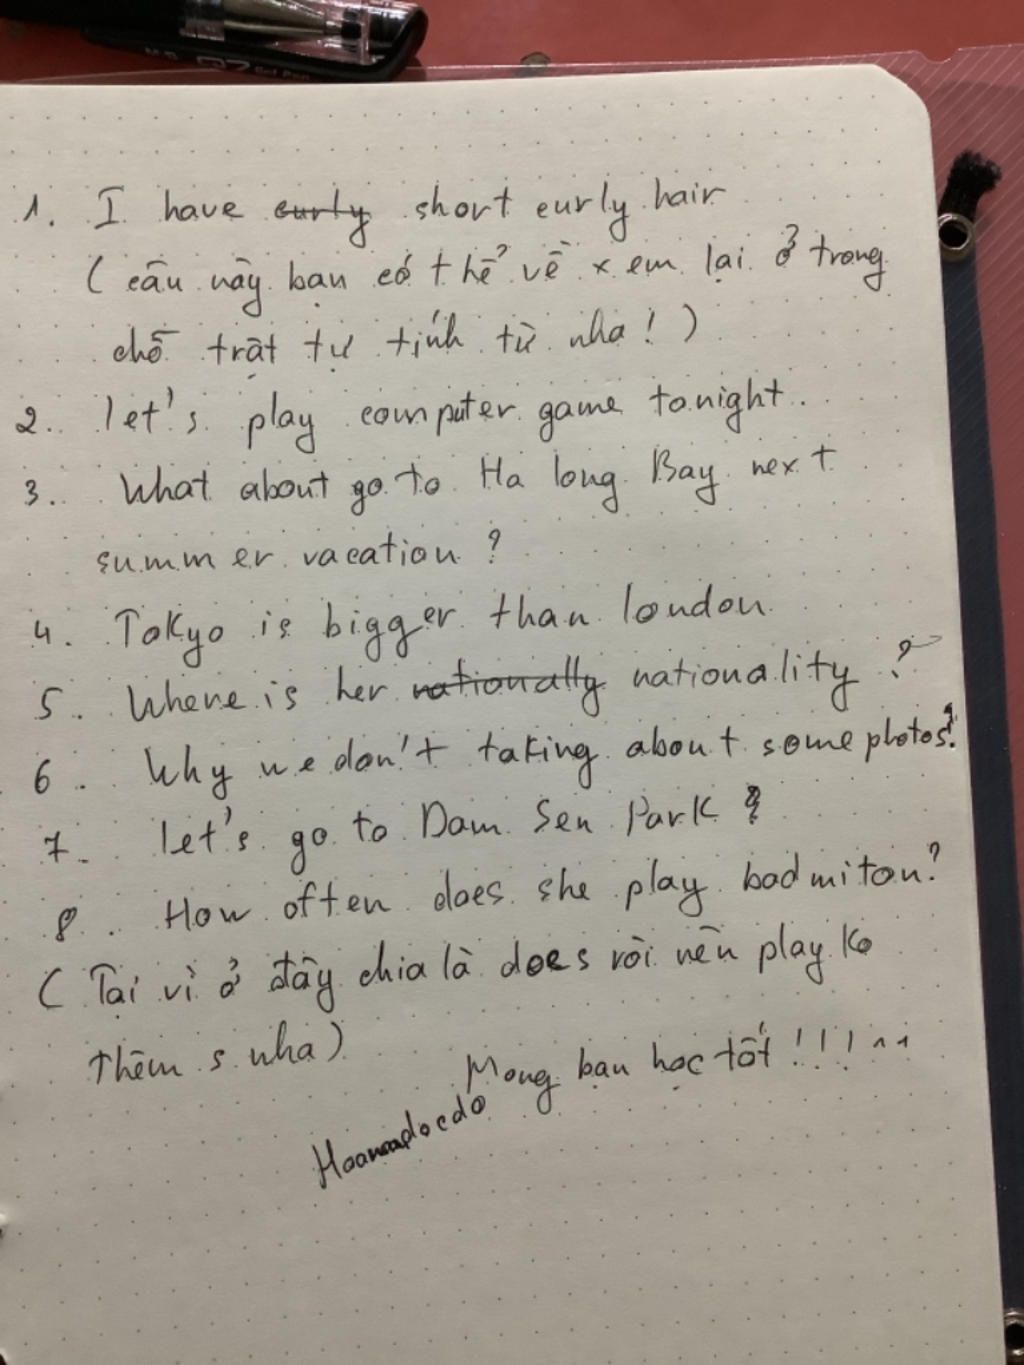 Gel Pen
1. I have curly short curly hair
( câu này bạn có thể về xem lại ở trong
chỗ trật tự tính từ nha! )
2. let's play computer game tonight.
3. What about go to Ha long Bay next
summer vacation?
4. Tokyo is bigger than london
5. Where is her nationally nationality?
6. Why we don't taking about some photos?
7. let's go to Dam Sen Park?
8. How often does she play badmiton?
( Tại vì ở đây chia là does rồi nên play ko
thêm s nha )
Mong bạn học tốt!!! ^^